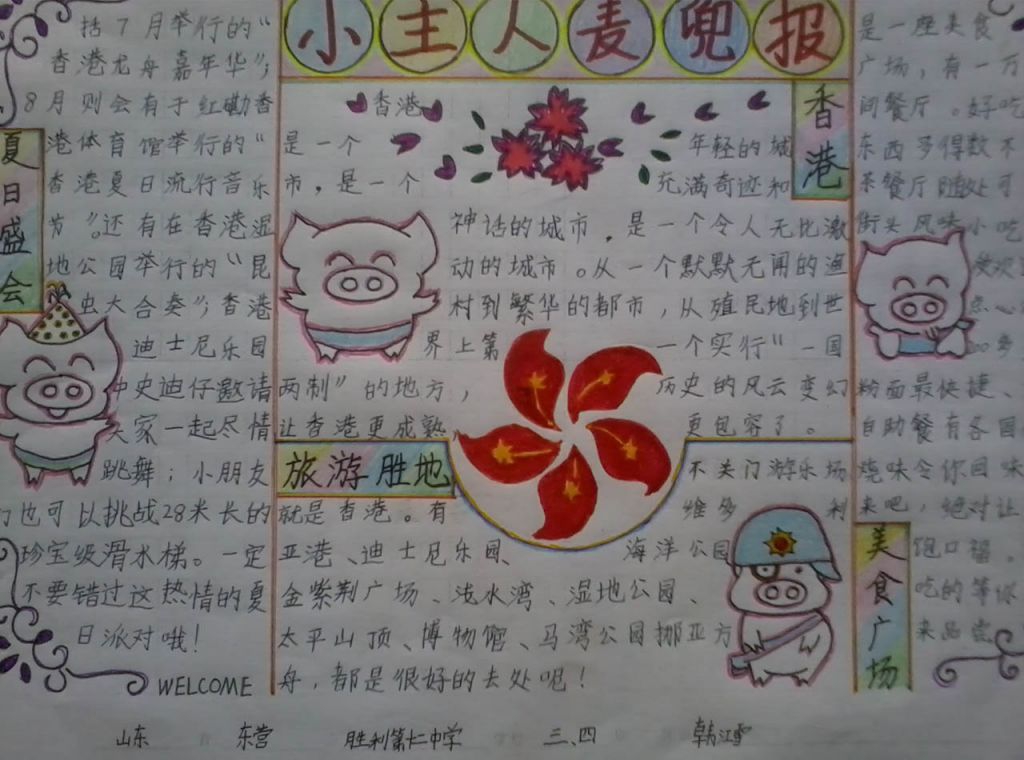 小主人麦兜报
括7月举行的“
香港龙舟嘉年华”；
8月则会有于红磡香
港体育馆举行的“
香港夏日流行音乐
节”。还有在香港湿
地公园举行的“昆
虫大合奏”；香港
迪士尼乐园
史迪仔邀请
大家一起尽情
跳舞；小朋友
们也可以挑战28米长的
珍宝级滑水梯。一定
不要错过这热情的夏
日派对哦！
WELCOME
夏日盛会
香港
香港
是一个年轻的城
市，是一个充满奇迹和
神话的城市，是一个令人无比激
动的城市。从一个默默无闻的渔
村到繁华的都市，从殖民地到世
界上第一个实行“一国
两制”的地方，历史的风云变幻
让香港更成熟，更包容了。
旅游胜地
不关门游乐场
就是香港。有维多利
亚港、迪士尼乐园、海洋公园
金紫荆广场、浅水湾、湿地公园、
太平山顶、博物馆、马湾公园挪亚方
舟，都是很好的去处呢！
是一座美食
广场，有一万
间餐厅。好吃
东西多得数不
茶餐厅随处可
街头风味小吃
点心
粉面最快捷、
自助餐有各国
烧味令你回味
来吧，绝对让
饱口福。
吃的等你
来品尝
美食广场
山东 东营 胜利第仁中学 三、四 韩江雪